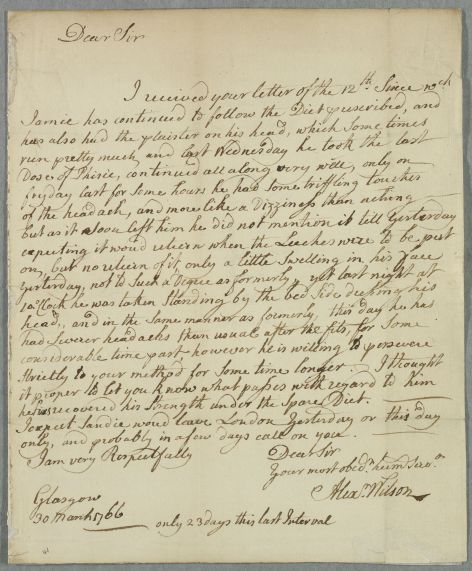 Dear Sir
I received your letter of the 12th Since wch
Jamie has continued to follow the Diet prescribed, and
has also had the plaister on his head, which Some times
run pretty much, and last Wednesday he took the last
Dose of Phisic, continued all along very well, only on
fryday last for Some hours he had Some triffling touches
of the headach, and more like a Dizziness than acking
but as it Soon left him he did not mention it till Yesterday
expecting it would return when the Leeches were to be put
on, but no return of it, only a little Swelling in his face
Yesterday, not to Such a Degree as formerly, yet last night at
10 aClock he was taken Standing by the bed Side dressing his
head, and in the Same manner as formerly, this day he has
had Severer headachs than usual after the fits, for Some
considerable time past however he is willing to persevere
Strictly to your method for Some time longer — I thought
it proper to let you know what passes with regard to him
he has recovered his Strength under the Spare Diet.
I expect Sandie would leave London Yesterday or this day
only, and probably in a few days call on you.
I am very Respectfully
Dear Sir
Your most obedt. huml Servt.
Alexr. Wilson
Glasgow
30 March 1766
only 23 days this last Interval